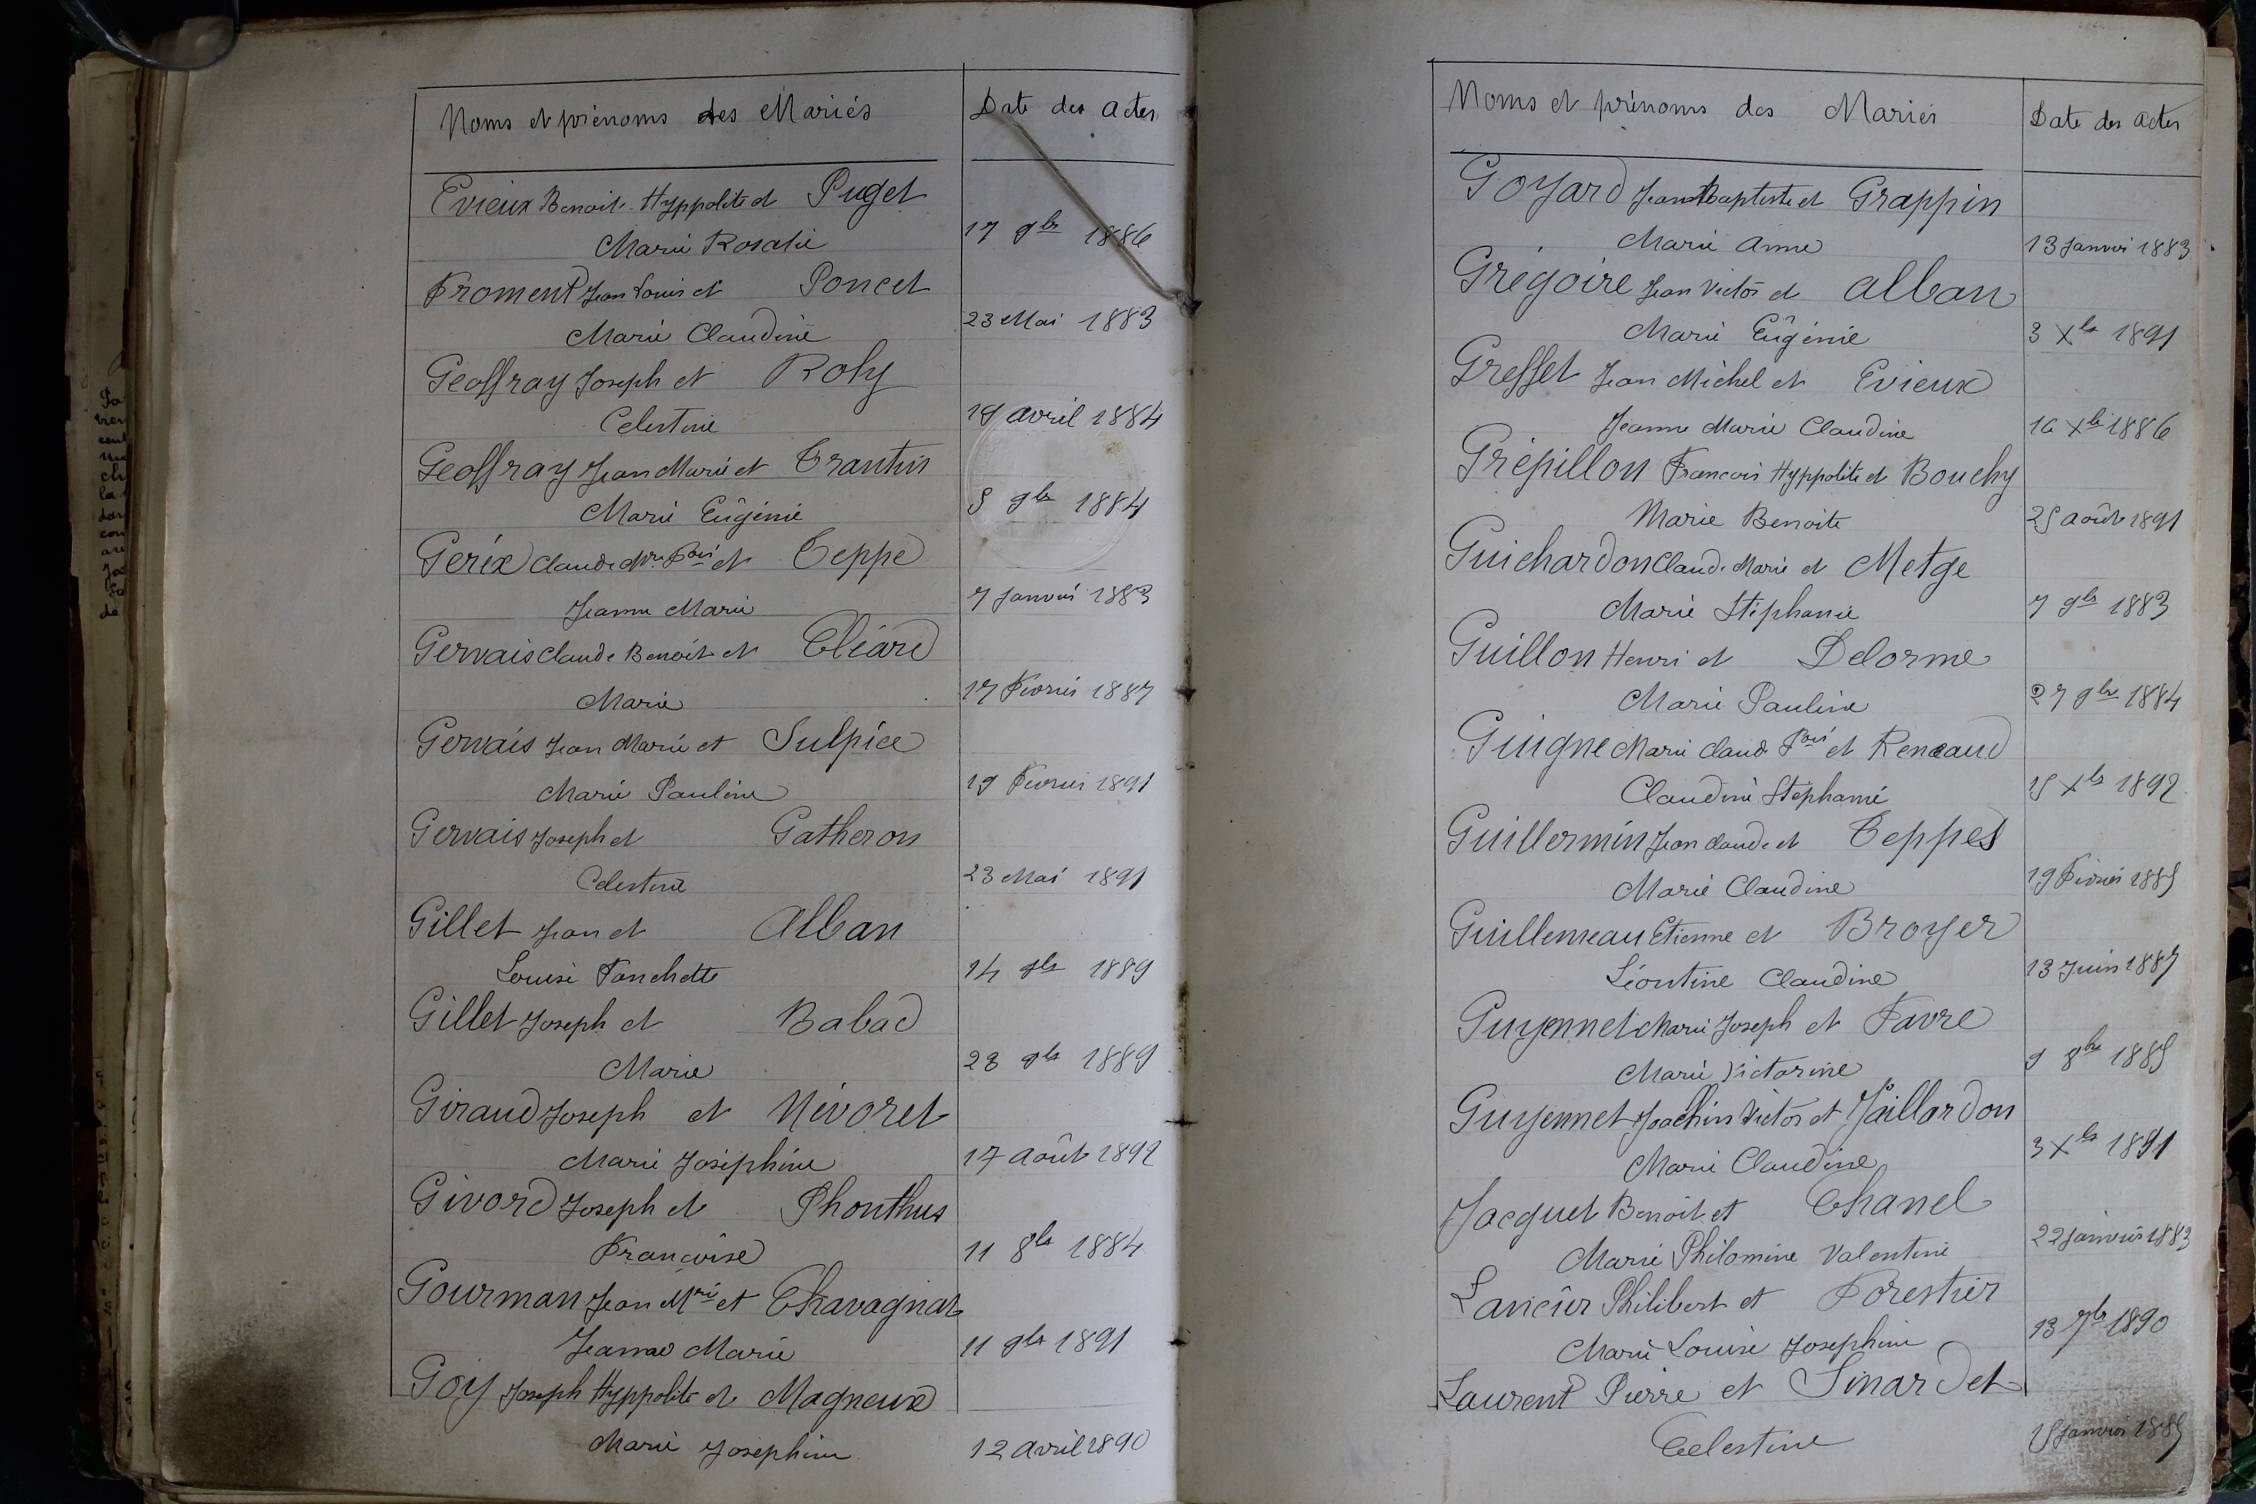 Noms et prénoms des Mariés Date des actes
Evieux Benoit Hyppolite et Puget
Marie Rosalie 17 9bre 1886
Froment Jean Louis et Poncet
Marie Claudine 23 Mai 1883
Geoffray Joseph et Roly
Celestine 19 avril 1884
Geoffray Jean Marie et Trantin
Marie Eugénie 5 9bre 1884
Gerix Claude Mie Fois et Teppe
Jeanne Marie 7 Janvier 1883
Gervais Claude Benoit et Cliard
Marie 17 Février 1887
Gervais Jean Marie et Sulpice
Marie Pauline 19 Février 1891
Gervais Joseph et Gatheron
Celestine 23 Mai 1891
Gillet Jean et Alban
Louise Fanchette 14 9bre 1889
Gillet Joseph et Babad
Marie 28 9bre 1889
Giraud Joseph et Névoret
Marie Joséphine 17 août 1892
Givord Joseph et Phonthus
Françoise 11 8bre 1884
Gourman Jean Mrie et Chavagnat
Jeanne Marie 11 9bre 1891
Goy Joseph Hyppolite et Magneux
Marie Joséphine 12 avril 1890
Noms et prénoms des Mariés Date des actes
Goyard Jean Baptiste et Grappin
Marie Anne 13 Janvier 1883
Grégoire Jean Victor et Alban
Marie Eugénie 3 Xbre 1891
Greffet Jean Michel et Evieux
Jeanne Marie Claudine 16 Xbre 1886
Grépillon François Hyppolite et Bouchy
Marie Benoite 25 août 1891
Guichardon Claude Marie et Metge
Marie Stéphanie 7 9bre 1883
Guillon Henri et Delorme
Marie Pauline 27 9bre 1884
Guigne Marie Claude Fois et Renaud
Claudine Stéphanie 15 Xbre 1892
Guillermin Jean Claude et Teppes
Marie Claudine 19 Février 1885
Guillemeau Etienne et Broyer
Léontine Claudine 13 Juin 1887
Guyennet Marie Joseph et Favre
Marie Victorine 9 8bre 1885
Guyennet Joachin Victor et Jaillardon
Marie Claudine 3 Xbre 1891
Jacquet Benoit et Chanel
Marie Philomine Valentine 22 Janvier 1883
Lancêur Philibert et Forestier
Marie Louise Josephine 13 7bre 1890
Laurent Pierre et Sinardet
Celestine 15 Janvier 1885